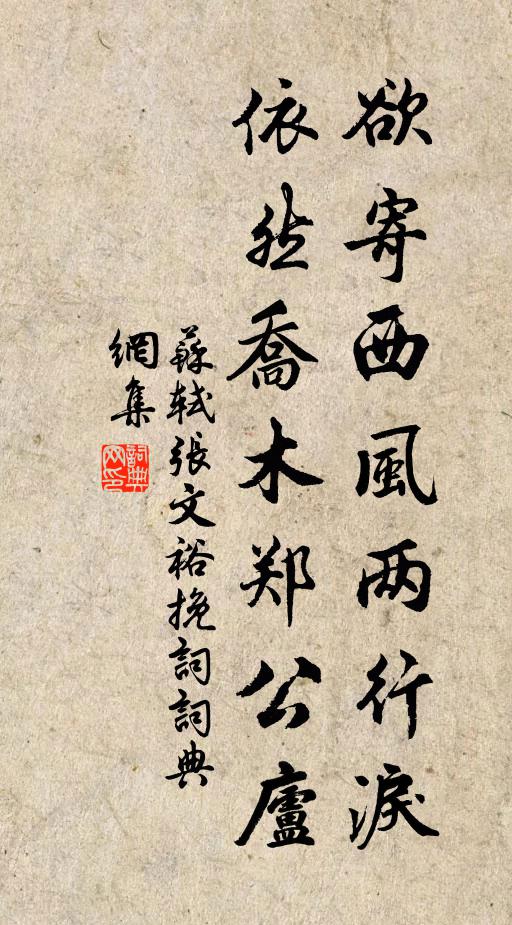 欲寄西風两行淚
依然喬木郑公廬
蘇軾張文裕挽詞詞典
網集
詞典
网印